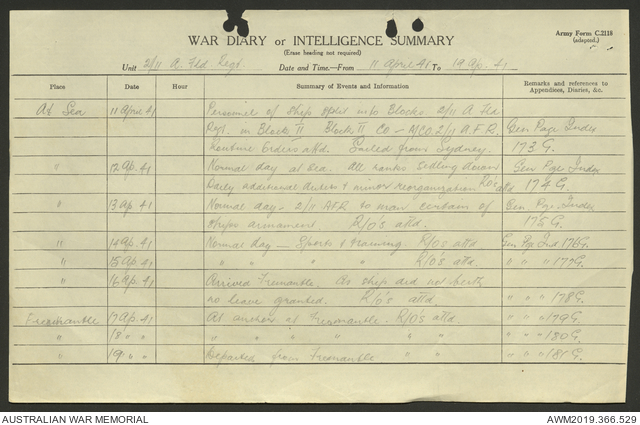 WAR DIARY or INTELLIGENCE SUMMARY
Army Form C.2118
(adapted.)
(Erase heading not required)
Unit 2/11 A. Fld Regt. Date and Time—From 11 April 41 To 19 Ap. 41
Place Date Hour Summary of Events and Information Remarks and references to Appendices, Diaries, &c.
At Sea 11 April 41 Personnel of ship split into Blocks. 2/11 A Fld
Regt. in Block II Block II CO – M/CO. 2/11 A.F.R. Gen Page Index
Routine Orders attd. Sailed from Sydney. 173 G.
" 12 Ap. 41 Normal day at sea. All ranks settling down Gen Pge Index
Daily additional duties & minor reorganization R/O's attd 174 G.
" 13 Ap. 41 Normal day - 2/11 AFR to man certain of Gen. Pge. Index
ships armament. R/O's attd. 175 G.
" 14 Ap. 41 Normal day — Sports & training. R/O's attd Gen Pge Ind 176G.
" 15 Ap. 41 " " " " R/O's attd. " " " 177G.
" 16 Ap. 41 Arrived Fremantle. As ship did not berth
no leave granted. R/O's attd. " " " 178G.
Freemantle 17 Ap. 41 At anchor at Freemantle - R/O's attd. " " " 179G
" 18 " " " " " " " " " " 180G.
" 19 " " Departed from Freemantle. " " " " 181G.
AUSTRALIAN WAR MEMORIAL
AWM2019.366.529